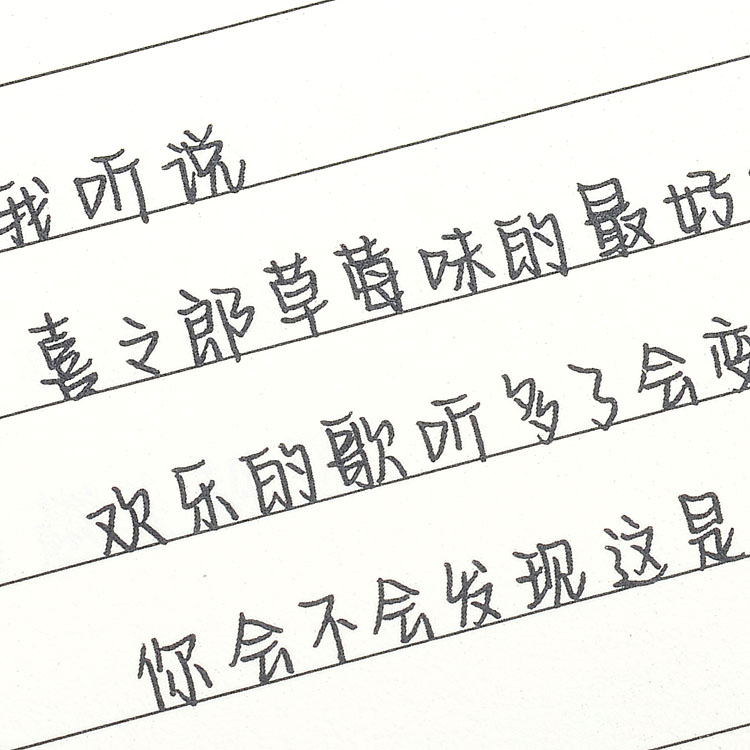 我听说
喜之郎草莓味的最好
欢乐的歌听多了会变
你会不会发现这是